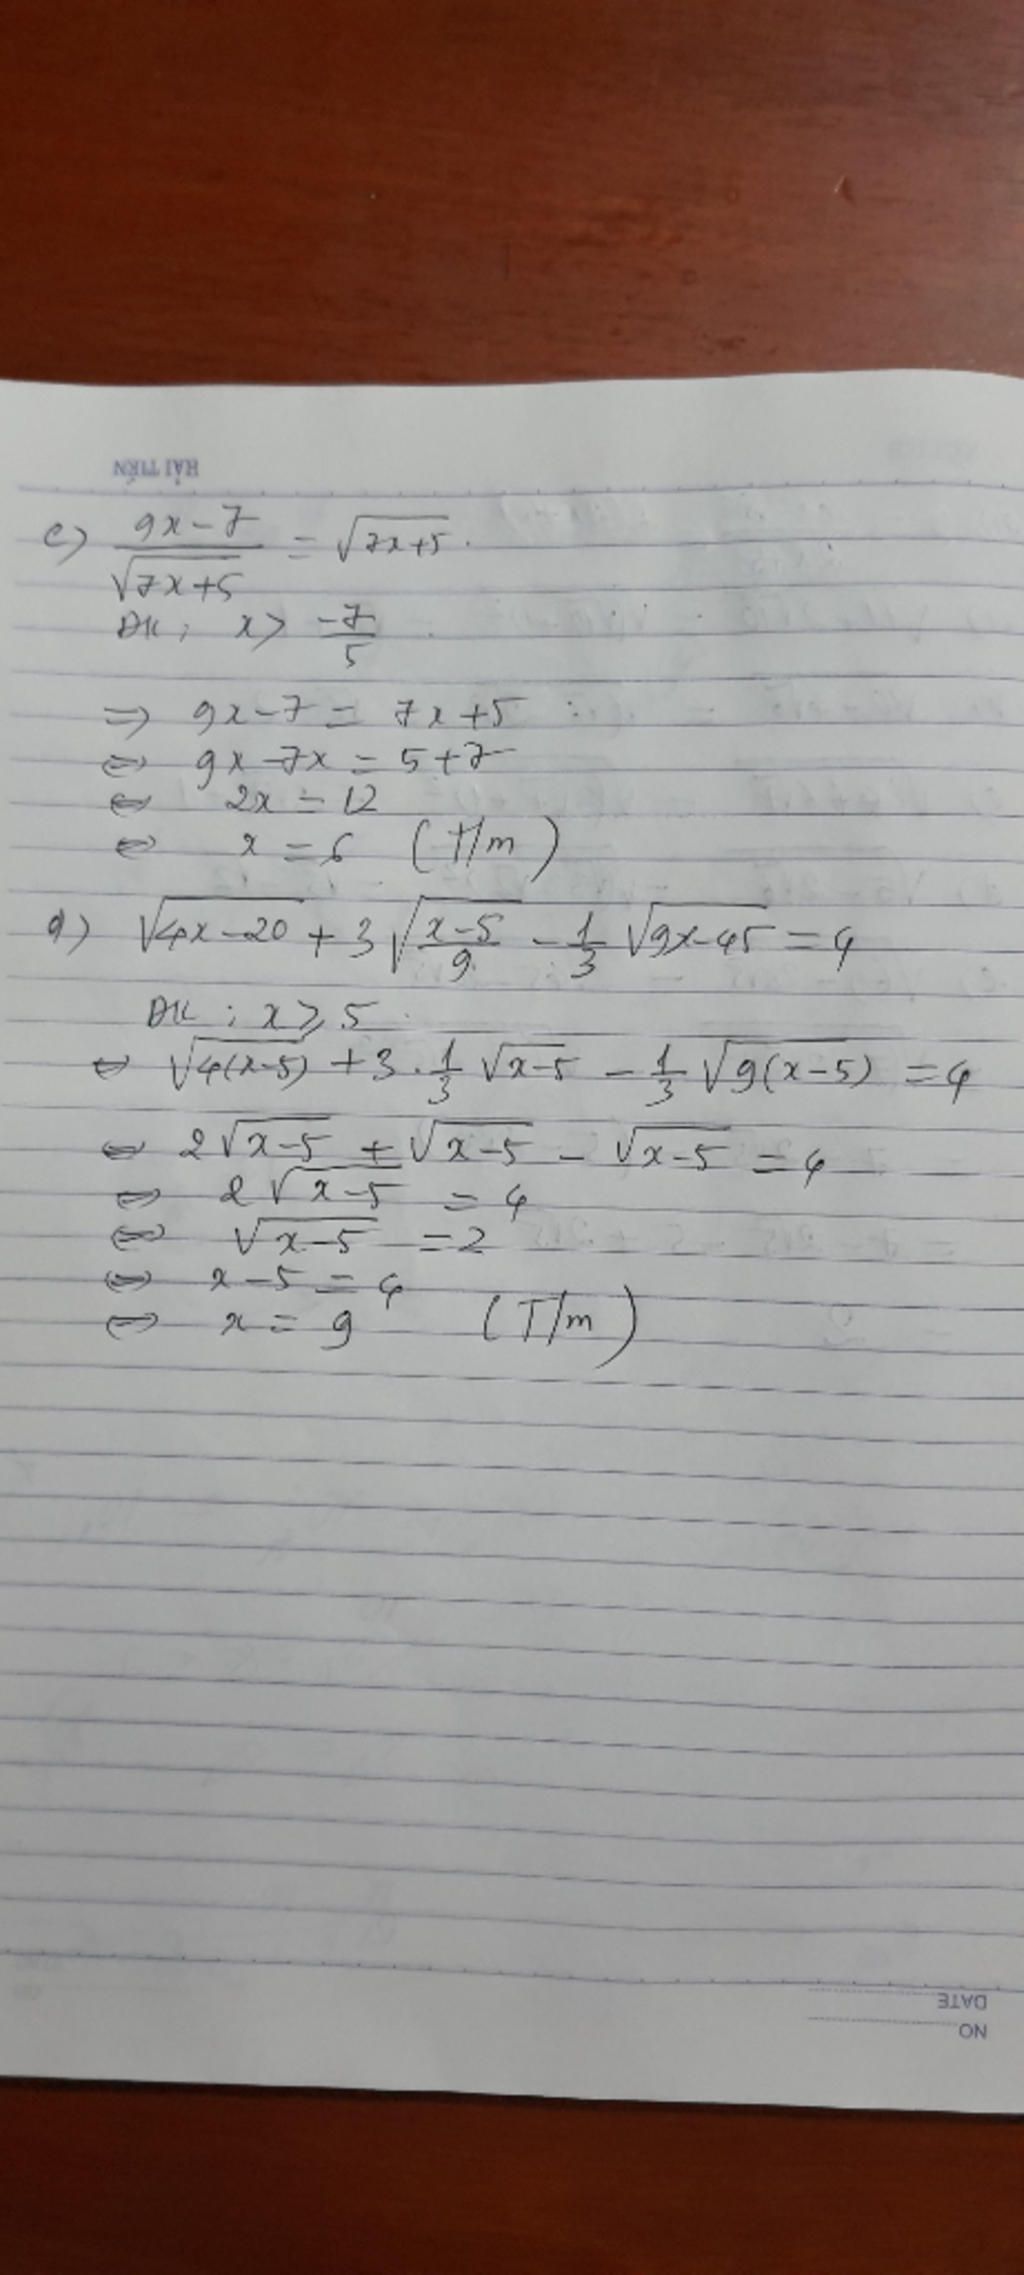 HẢI TIẾN
c) \frac{9x-7}{\sqrt{7x+5}} = \sqrt{7x+5}.
ĐK: x > \frac{-7}{5}
=> 9x-7 = 7x+5
<=> 9x-7x = 5+7
<=> 2x = 12
<=> x = 6 (T/m)
d) \sqrt{4x-20} + 3\sqrt{\frac{x-5}{9}} - \frac{1}{3}\sqrt{9x-45} = 4
ĐK: x ≥ 5
<=> \sqrt{4(x-5)} + 3.\frac{1}{3}\sqrt{x-5} - \frac{1}{3}\sqrt{9(x-5)} = 4
<=> 2\sqrt{x-5} + \sqrt{x-5} - \sqrt{x-5} = 4
<=> 2\sqrt{x-5} = 4
<=> \sqrt{x-5} = 2
<=> x-5 = 4
<=> x = 9 (T/m)
DATE
NO